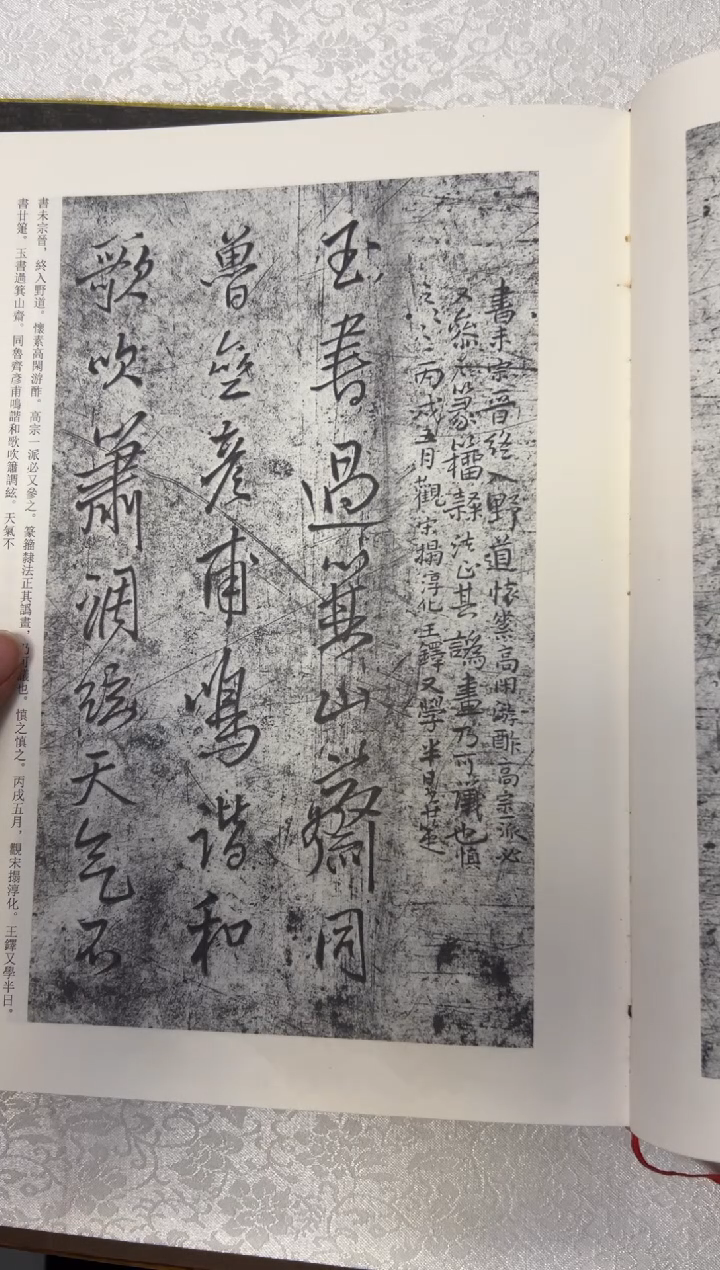 書未宗晉終入野道懷素高閑游酢高宗一派必
又參之篆籀隸法正其譌畫乃可也慎
之慎之丙戌五月觀宋搨淳化王鐸又學半日廿
玉書過箕山齋同
魯齊彥甫鳴諧和
歌吹簫調絃天氣不
書未宗晉，終入野道。懷素高閑游酢。高宗一派必又參之。篆籀隸法正其譌畫，也。慎之慎之。丙戌五月，觀宋搨淳化。王鐸又學半日。
書廿。玉書過箕山齋。同魯齊彥甫鳴諧和歌吹簫調絃。天氣不